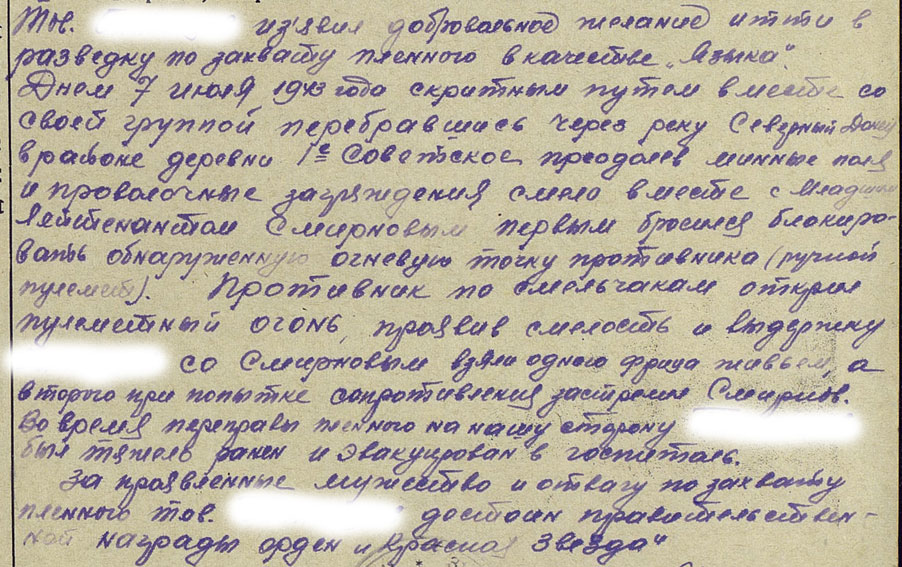 Тов. изъявил добровольное желание итти в
разведку по захвату пленного в качестве „Языка".
Днем 7 июля 1943 года скритным путем вместе со
своей группой перебравшись через реку Северный Донец
в районе деревни 1е Советское, преодолев минные поля
и проволочные заграждения смело вместе с младшим
лейтенантом Смирновым первым бросился блокиро-
вать обнаруженную огневую точку противника (ручной
пулемет). Противник по смельчакам открыл
пулеметный огонь, проявив смелость и выдержку
со Смирновым взяли одного фрица живьем, а
второго при попытке сопротивления застрелил Смирнов.
Во время переправы пленного на нашу сторону
был тяжело ранен и эвакуирован в госпиталь.
За проявленные мужество и отвагу по захвату
пленного тов. достоин правительствен-
ной награды орден „Красная Звезда"